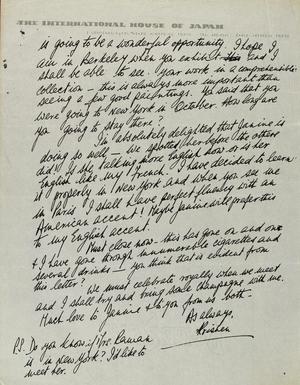 THE INTERNATIONAL HOUSE OF JAPAN
is going to be a wonderful opportunity. I hope I
am in Berkeley when you exhibit and I
shall be able to see your work in a comprehensible
collection – this is always more important than
seeing a few good paintings. You said that you
were going to New York in October. How long are
you going to stay there?
I'm absolutely delighted that Janine is
doing so well – we spotted her before the others
did! Is she talking more English now or is her
English like my French. I have decided to learn
it properly in New York and when you see me
in Paris I shall have perfect fluency with an
American accent! Maybe Janine will prefer this
to my English accent.
Must close now – this has gone on and on
& I have gone through innumerable cigarettes and
several drinks – you think that is evident from
this letter? We must celebrate royally when we meet
and I shall try and bring some champagne with me.
Much love to Janine & to you from us both –
As always,
Krishen
P.S. Do you know if Mrs.
is in New York? I'd like to
meet her.